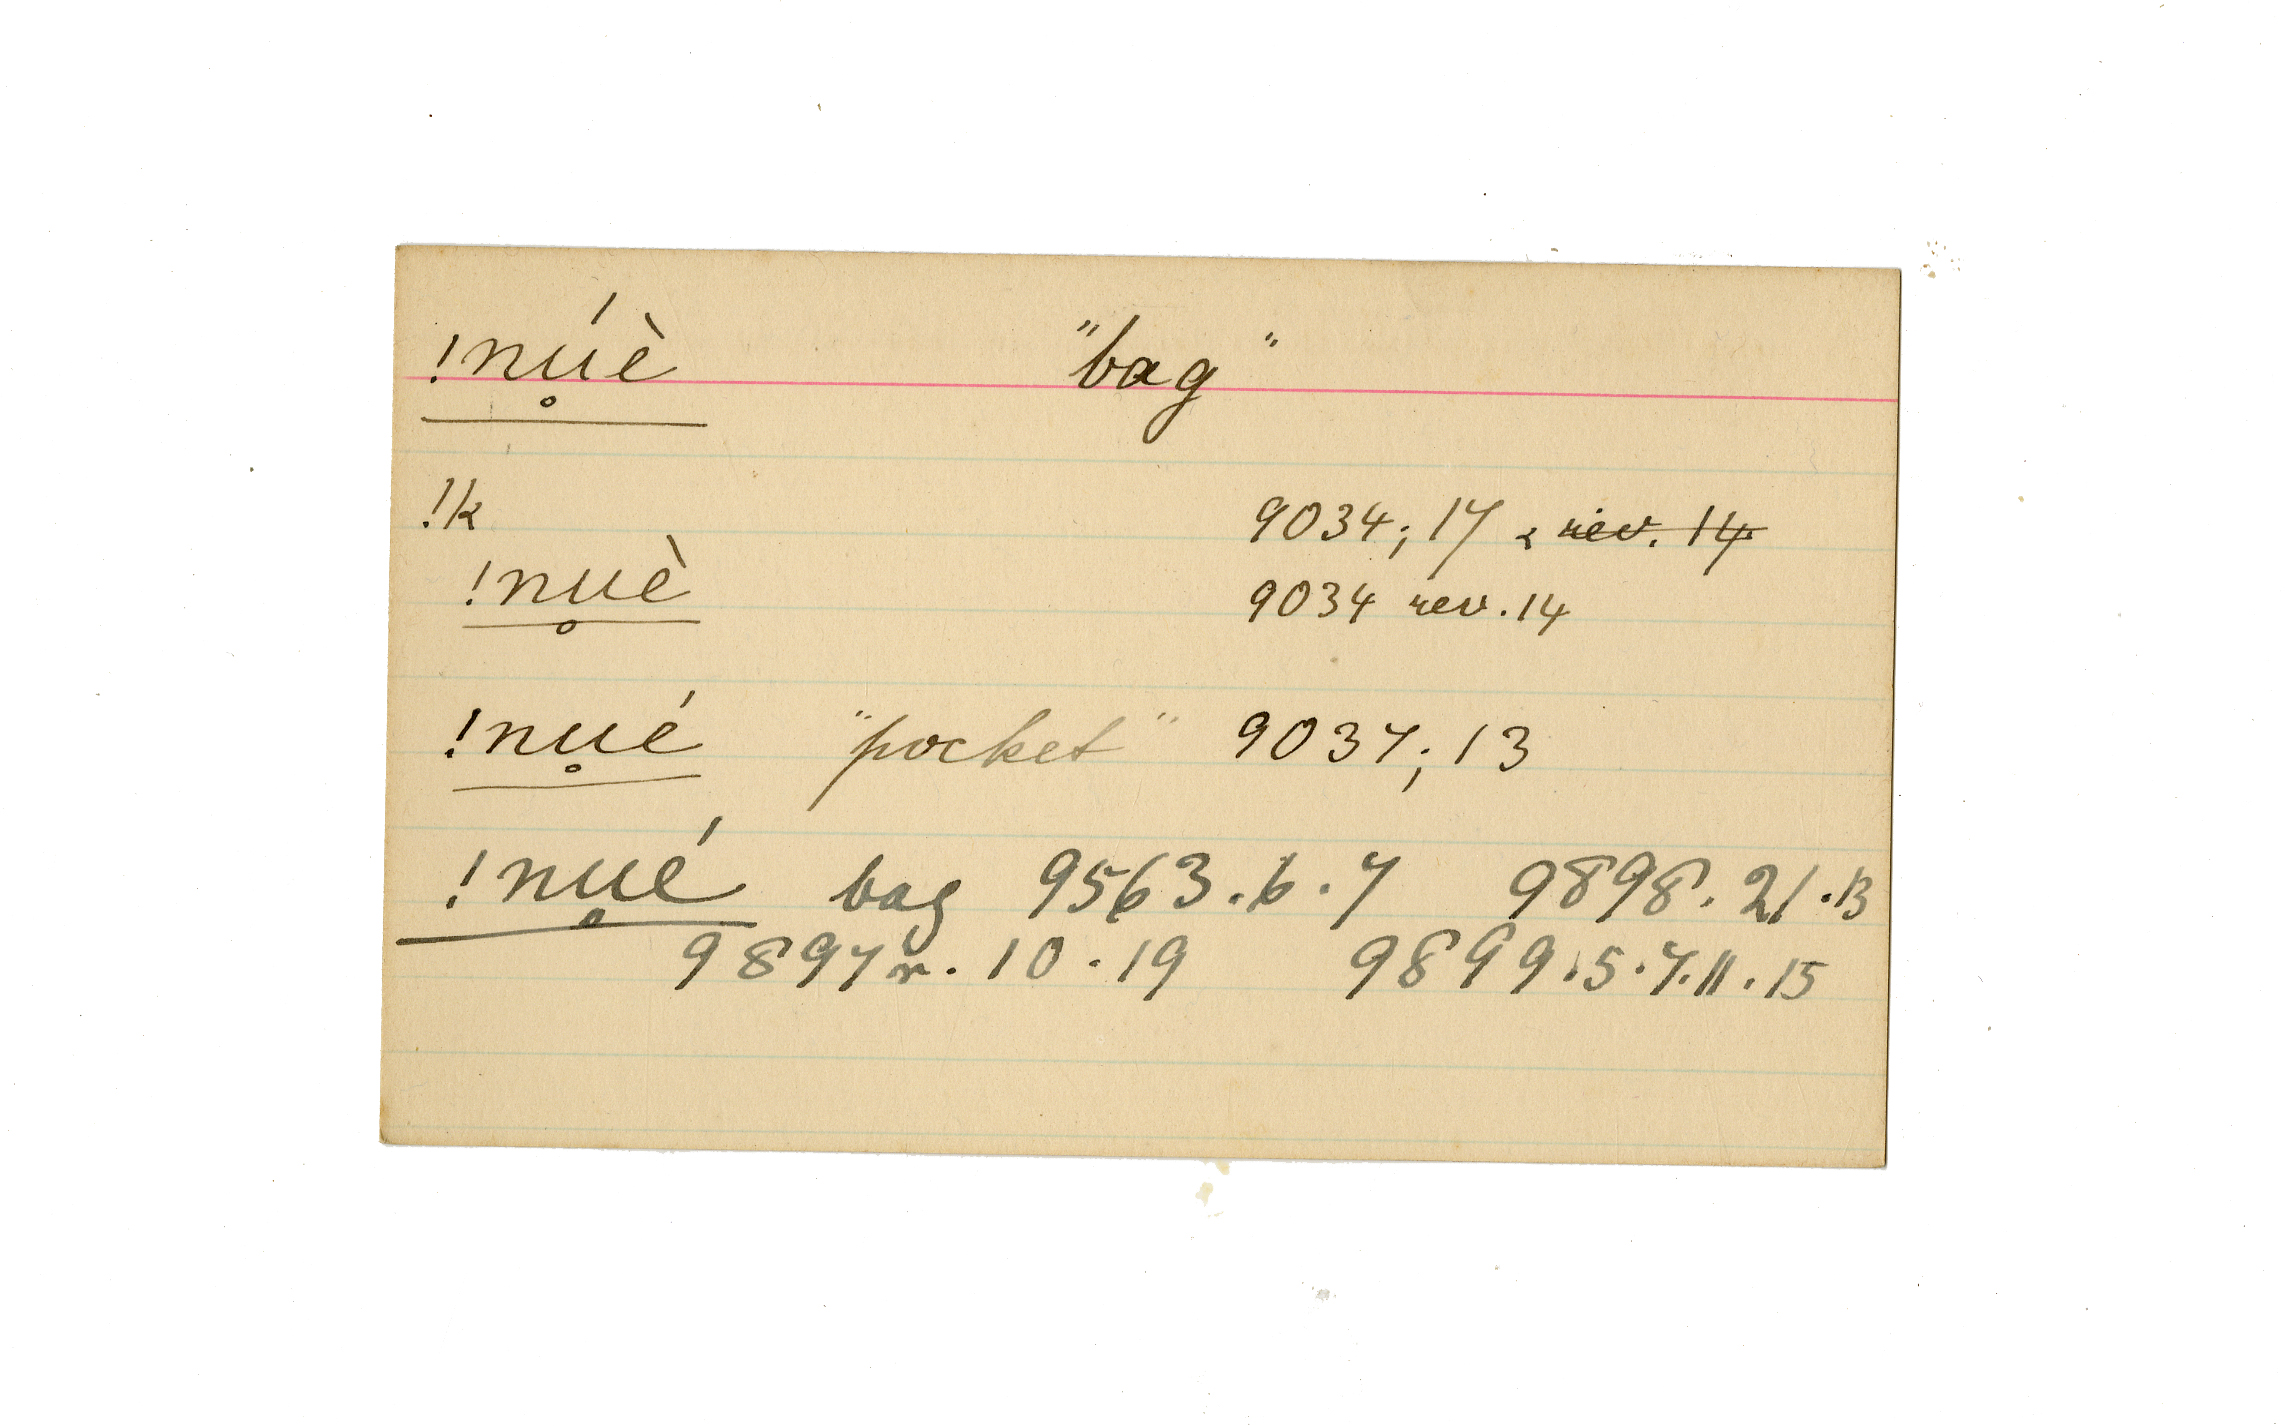 !nú̥è "bag"
!k 9034; 17 & ~~rev. 14~~
!nu̥è 9034 rev. 14
!nu̥é "pocket" 9037; 13
!nu̥é bag 9563.6.7 9898.21.13
9897r.10.19 9899.5.7.11.15